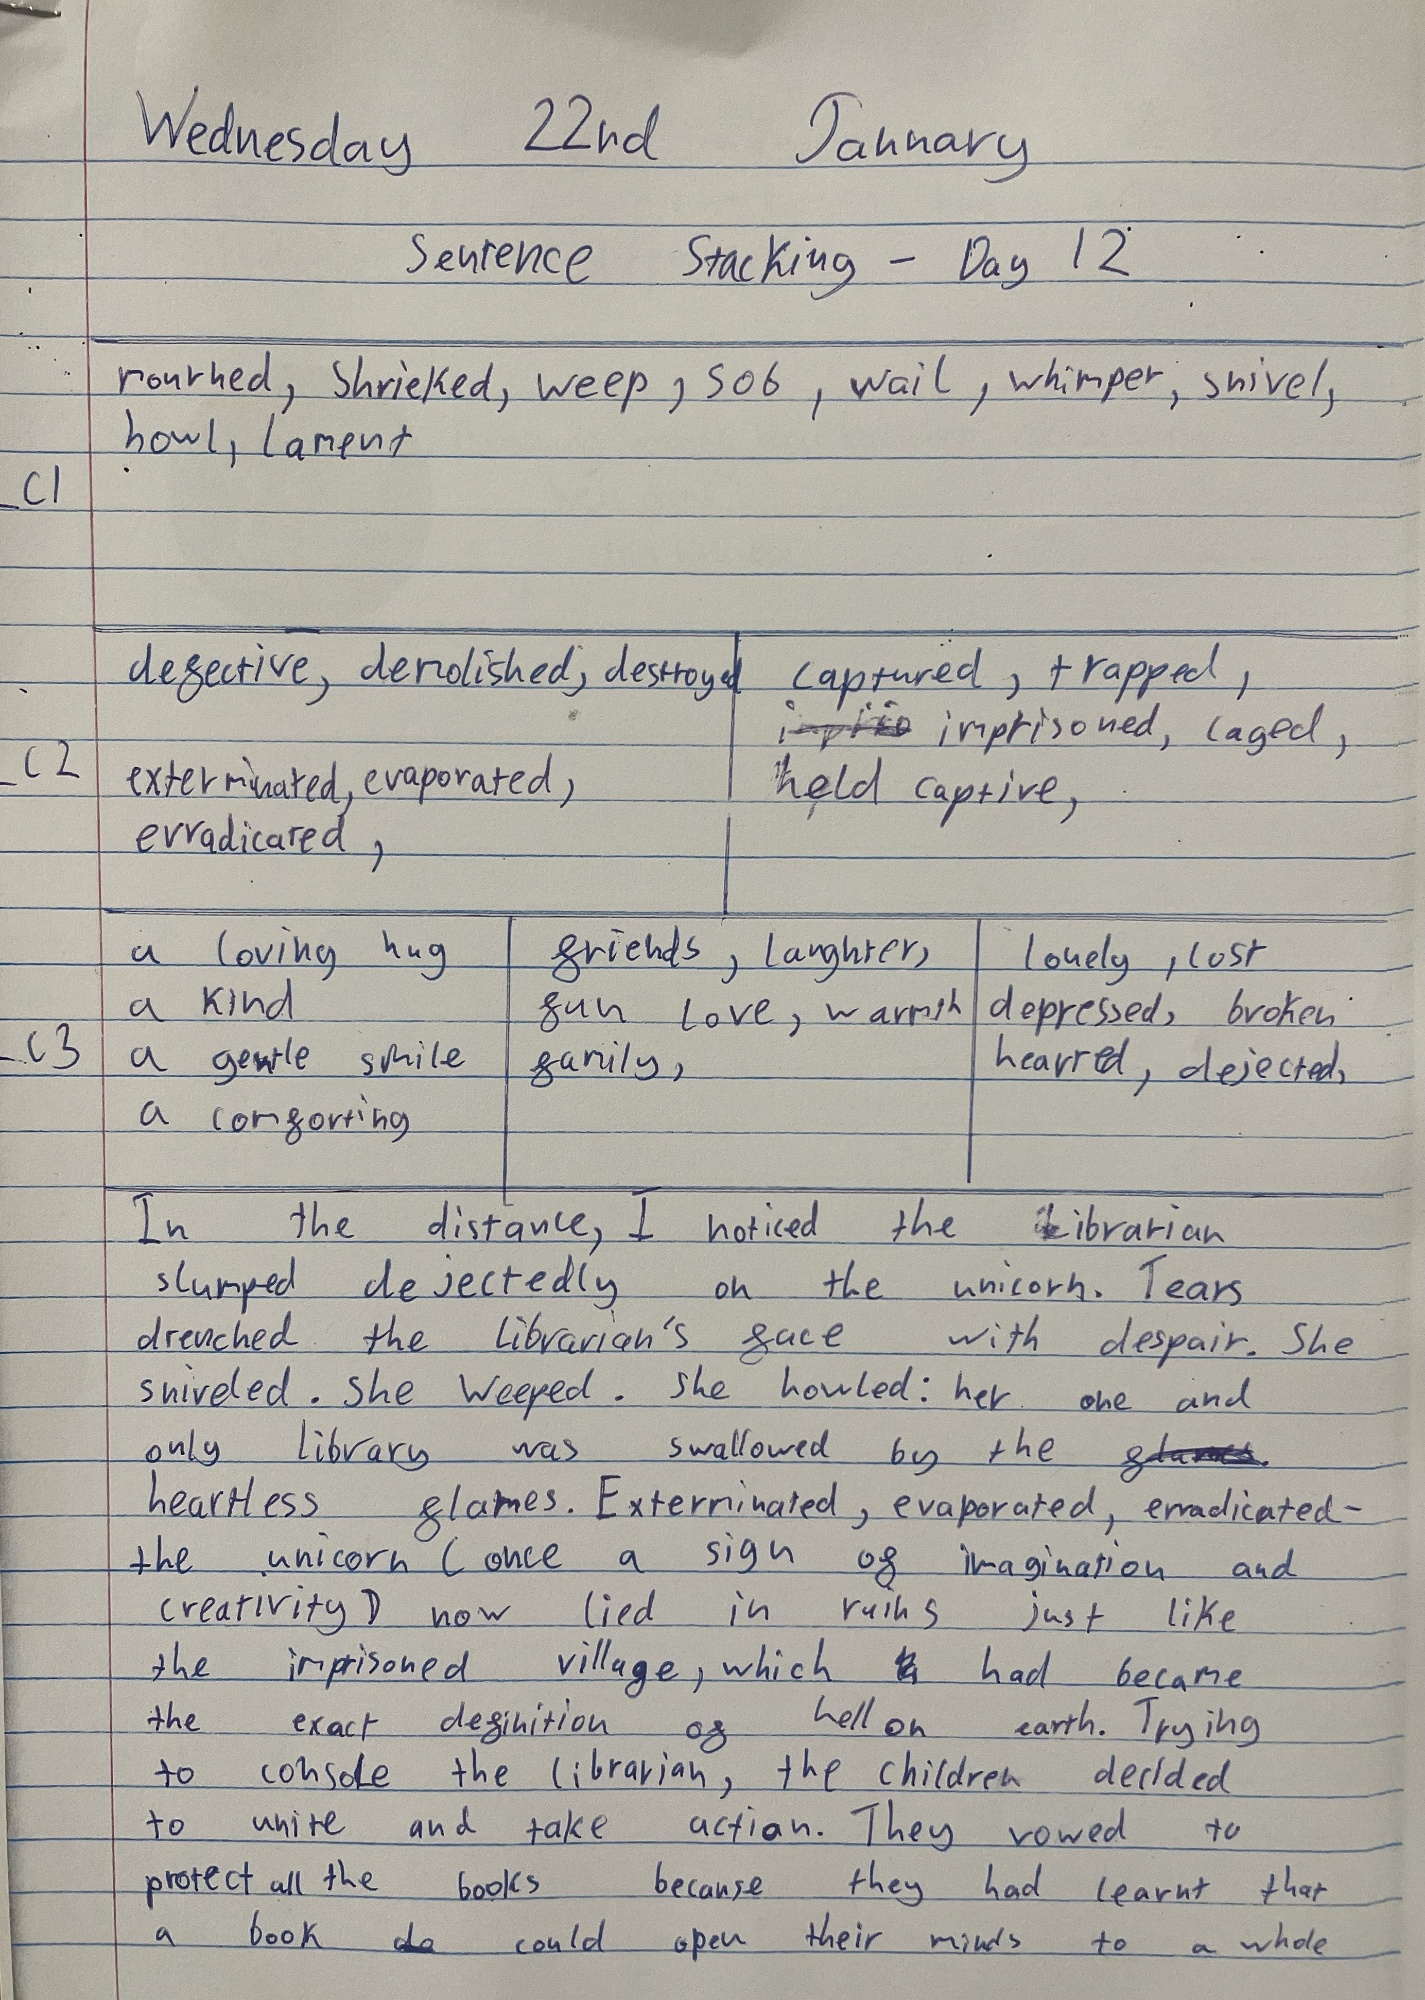 Wednesday 22nd January
Sentence Stacking - Day 12
mourned, shrieked, weep, sob, wail, whimper, snivel,
howl, lament
C1
defective, demolished, destroyed
exterminated, evaporated,
erradicated,
captured, trapped,
imprisoned, caged,
held captive,
C2
a loving hug
a kind
a gentle smile
a comforting
friends, laughter,
fun love, warmth
family,
lonely, lost
depressed, broken
hearted, dejected,
C3
In the distance, I noticed the Librarian
slumped dejectedly on the unicorn. Tears
drenched the librarian's face with despair. She
sniveled. She weeped. She howled: her one and
only library was swallowed by the flames.
heartless flames. Exterminated, evaporated, erradicated-
the unicorn (once a sign of imagination and
creativity) now lied in ruins just like
the imprisoned village, which had became
the exact definition of hell on earth. Trying
to console the librarian, the children decided
to unite and take action. They vowed to
protect all the books because they had learnt that
a book do could open their minds to a whole